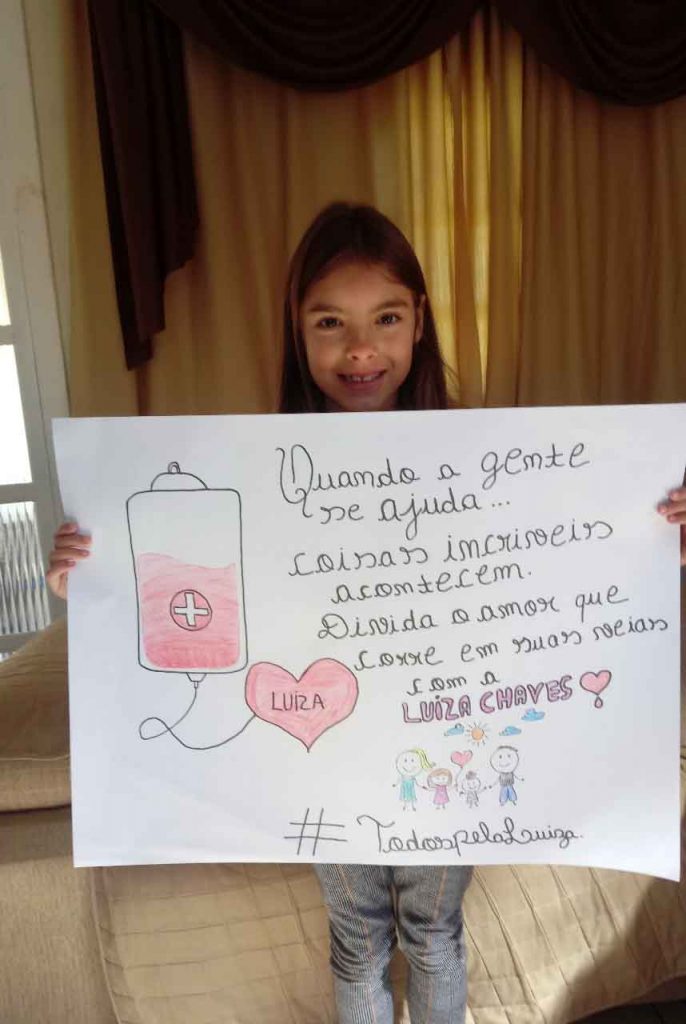 Quando a gente
se ajuda...
coisas incriveis
acontecem.
Divida o amor que
corre em suas veias
com a
LUIZA CHAVES
LUIZA
# TodospelaLuiza.